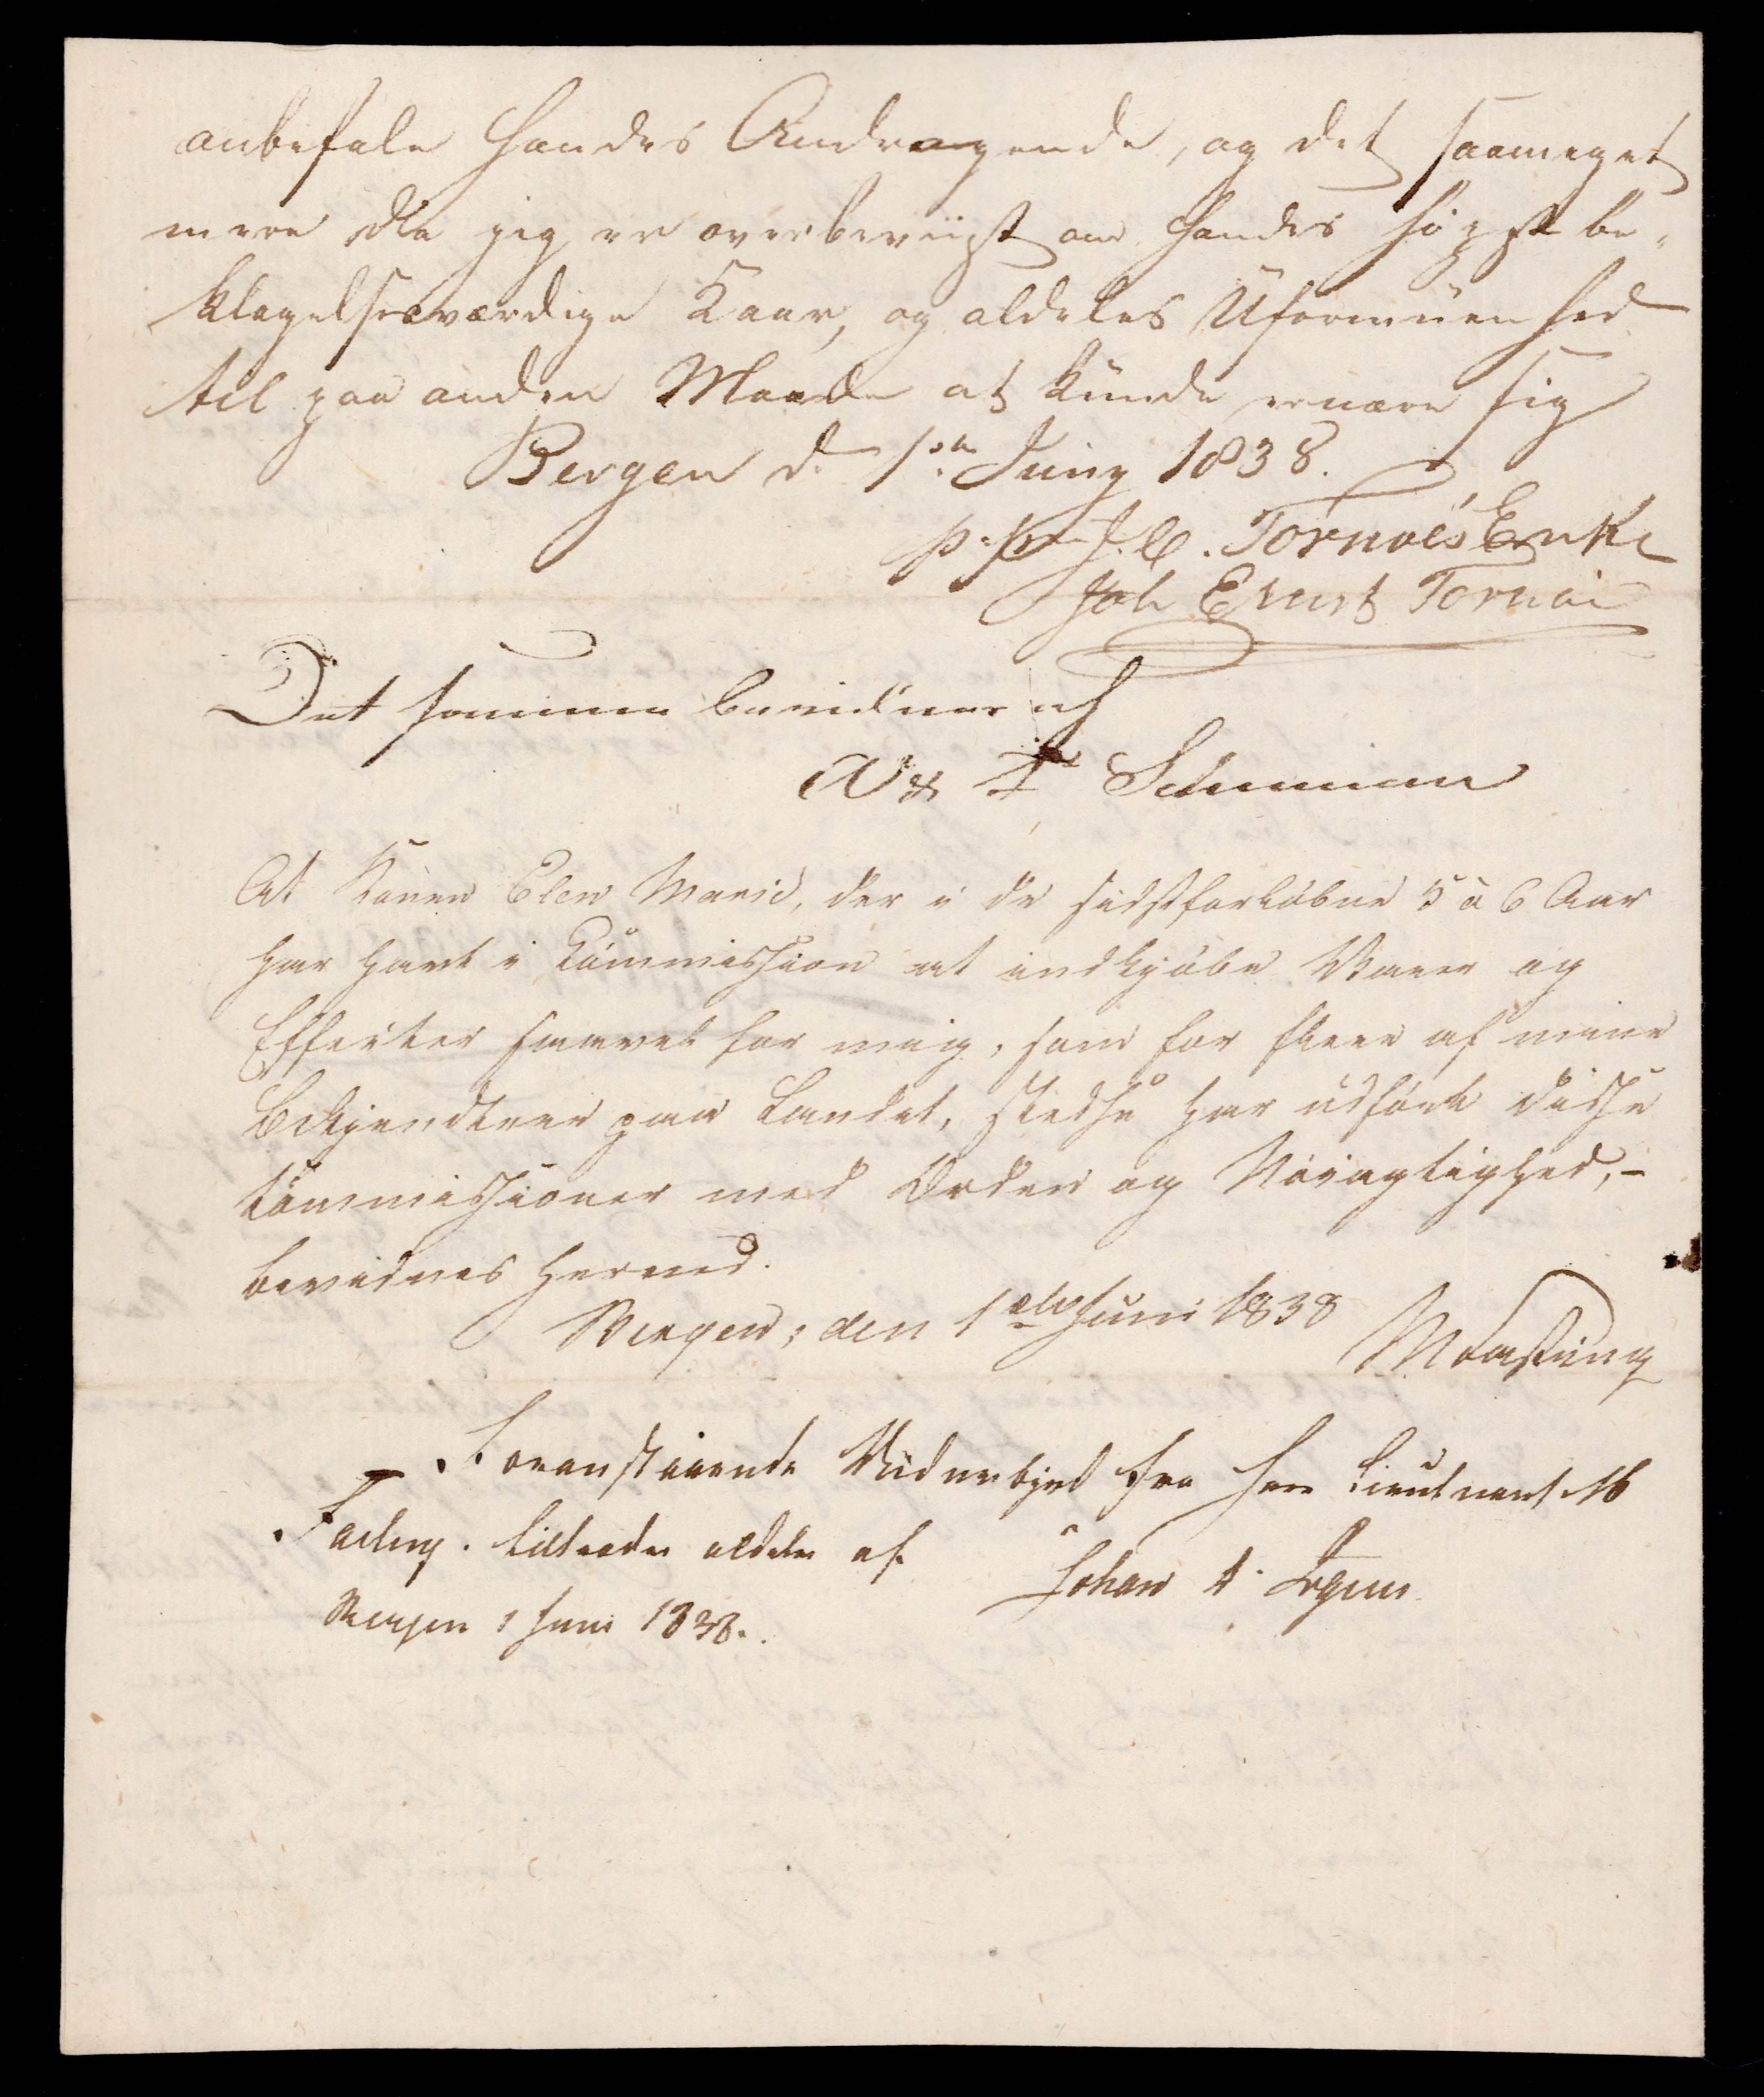 anbefale Hendes Andragende, og det saameget
mere da jeg er overbeviist om Hendes høyst be-
klagelsesværdige Kaar, og aldeles Uformuenhed
til paa anden Maade at kunde ernære sig
Bergen d. 1ste Juny 1838.
p. pr J. C. Tornøes Enke
Joh Ernst Tornøe
Det samme bevidner
At Konen Elen Marie, der i de sidstforløbne 5 à 6 Aar
har havt i Commission at indkjøbe Varer og
Effecter saavel for mig, som for flere af mine
Bekjendtere paa Landet, stedse har udført disse
Commissioner med Orden og Nøiagtighed, -
bevidnes herved.
Bergen, den 1ste Juni 1838
Foranstaaende Vidnesbyrd fra Herr Lieutnant
tiltrædes aldeles af
Johan
Bergen 1 Juni 1838.